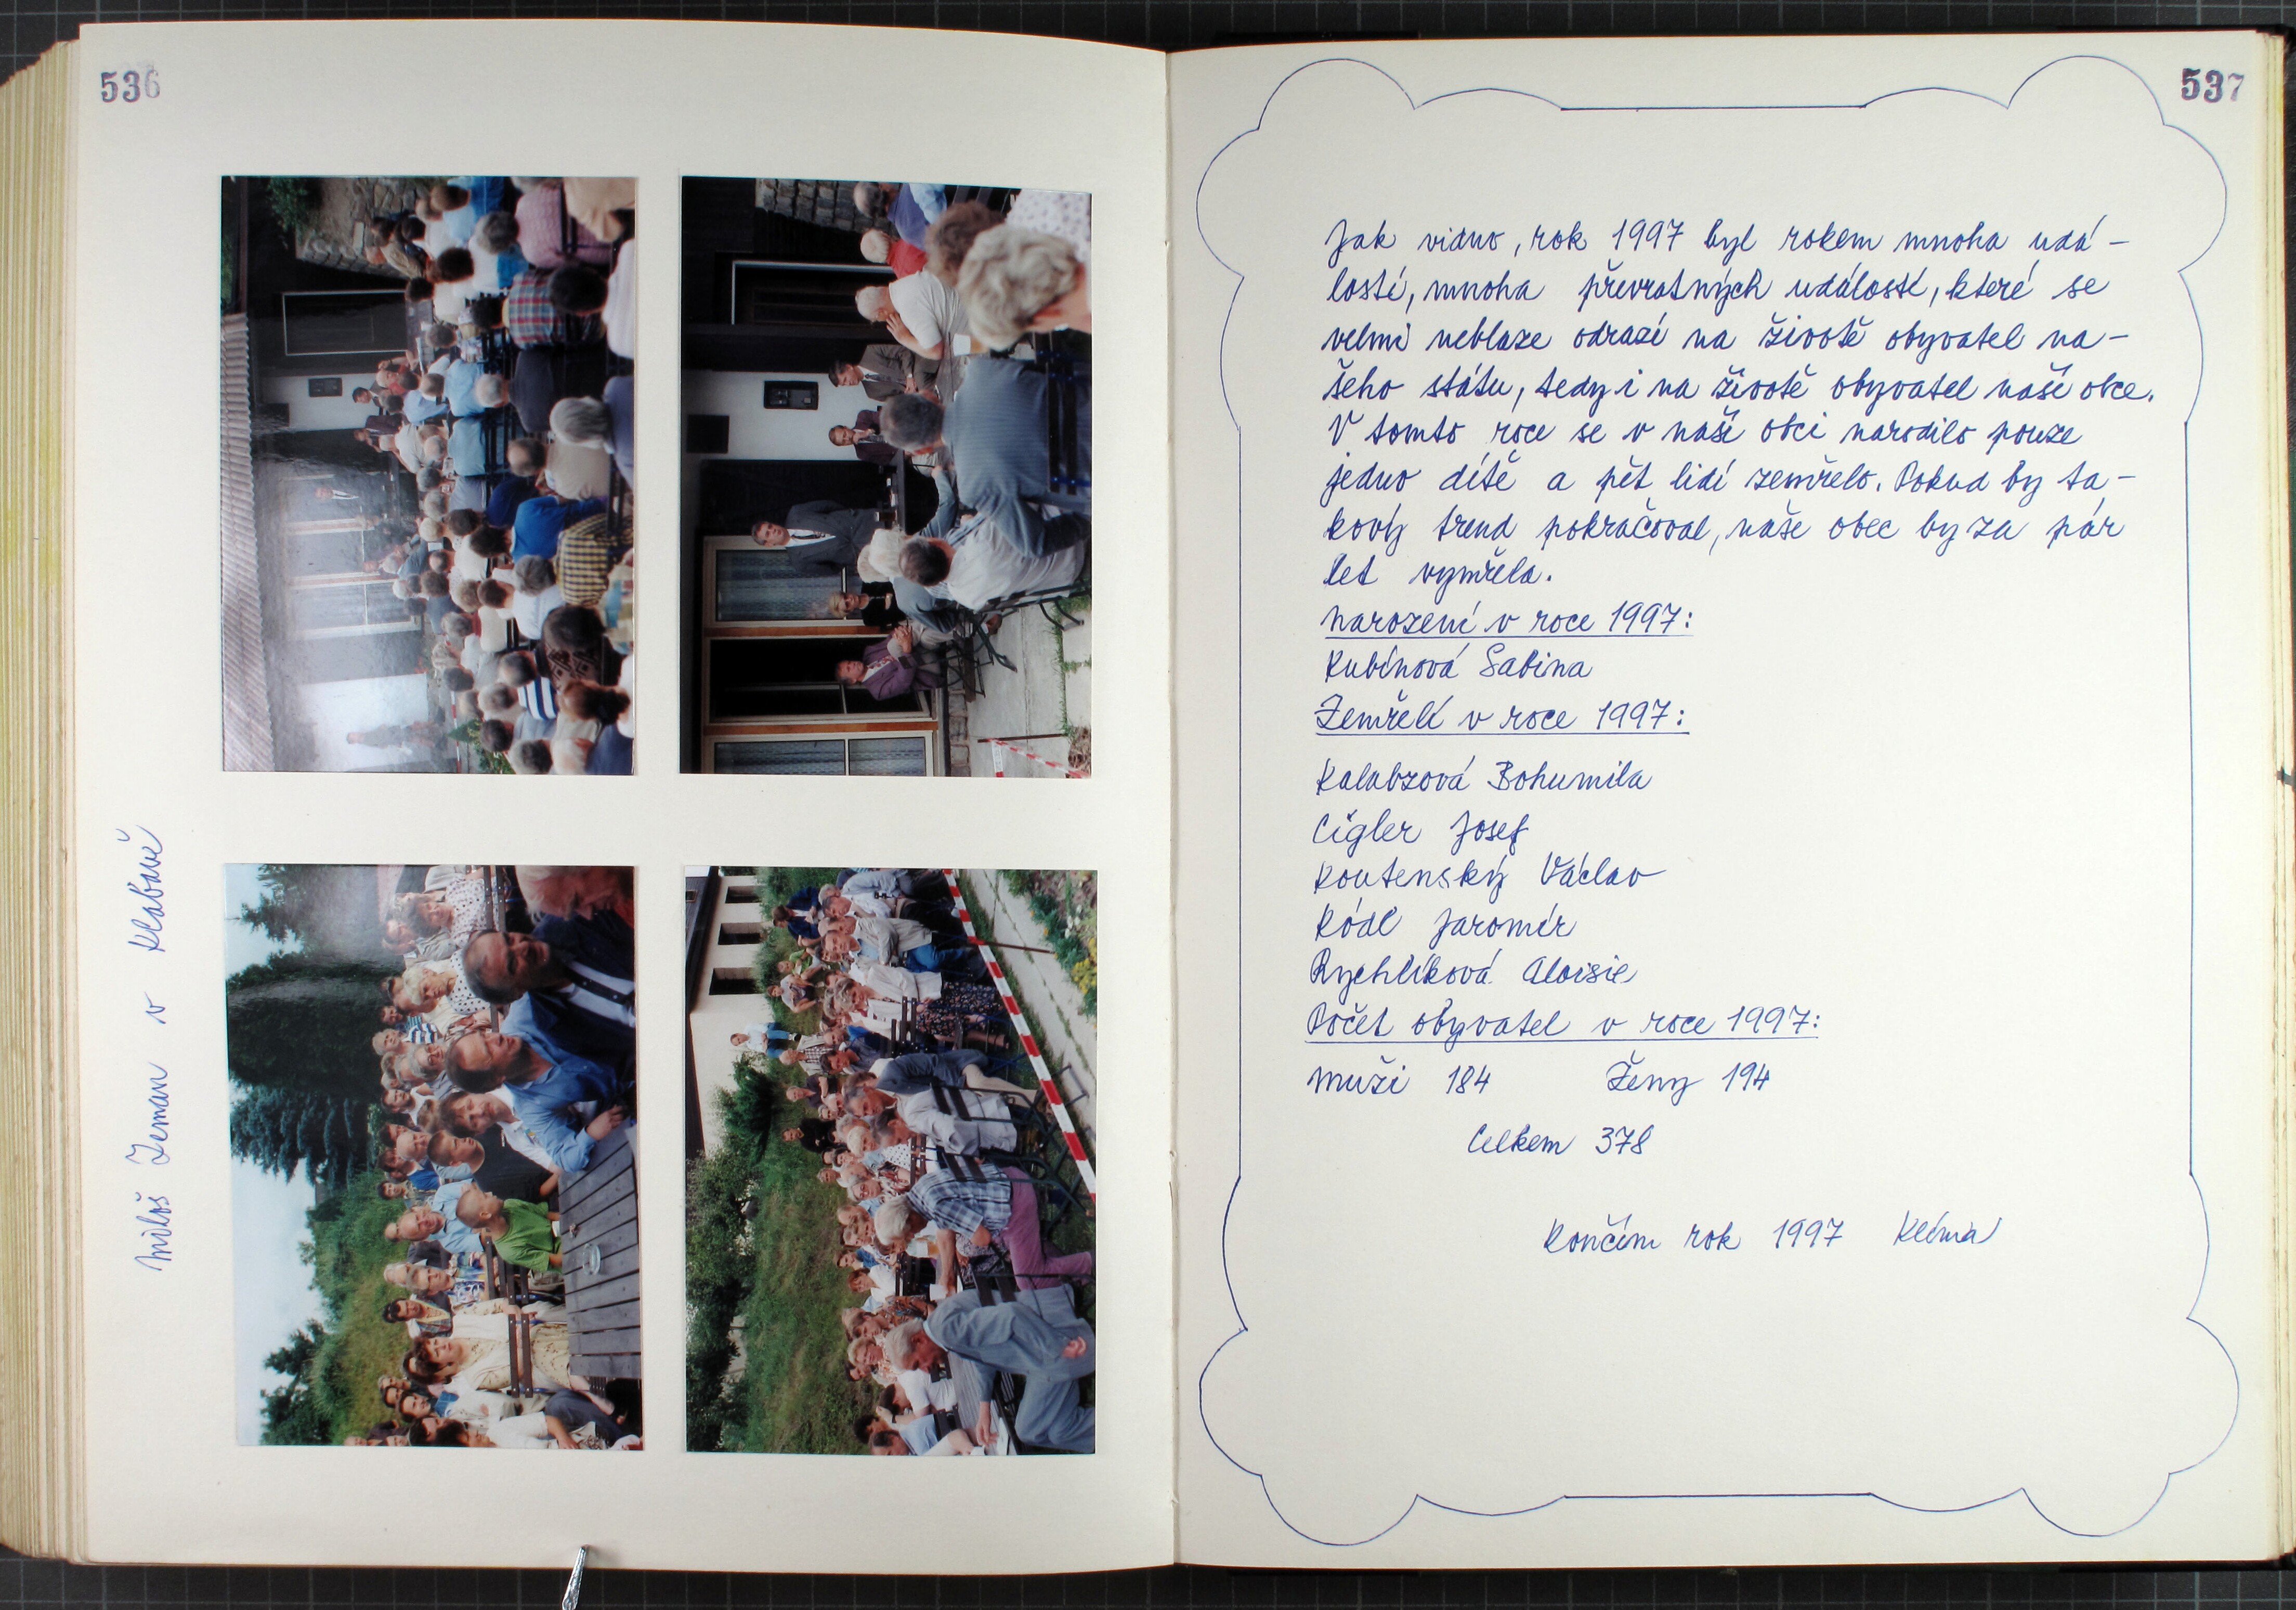 536
Miloš Zeman v Klabavě
537
Jak vidno, rok 1997 byl rokem mnoha udá-
lostí, mnoha převratných událostí, které se
velmi neblaze odrazí na životě obyvatel na-
šeho státu, tedy i na životě obyvatel naší obce.
V tomto roce se v naší obci narodilo pouze
jedno dítě a pět lidí zemřelo. Pokud by ta-
kový trend pokračoval, naše obec by za pár
let vymřela.
Narození v roce 1997:
Kubínová Sabina
Zemřelí v roce 1997:
Kalabzová Bohumila
Cígler Josef
Koutenský Václav
Kódl Jaromír
Rychlíková Aloisie
Počet obyvatel v roce 1997:
Muži 184 Ženy 194
Celkem 378
Končím rok 1997 Klíma